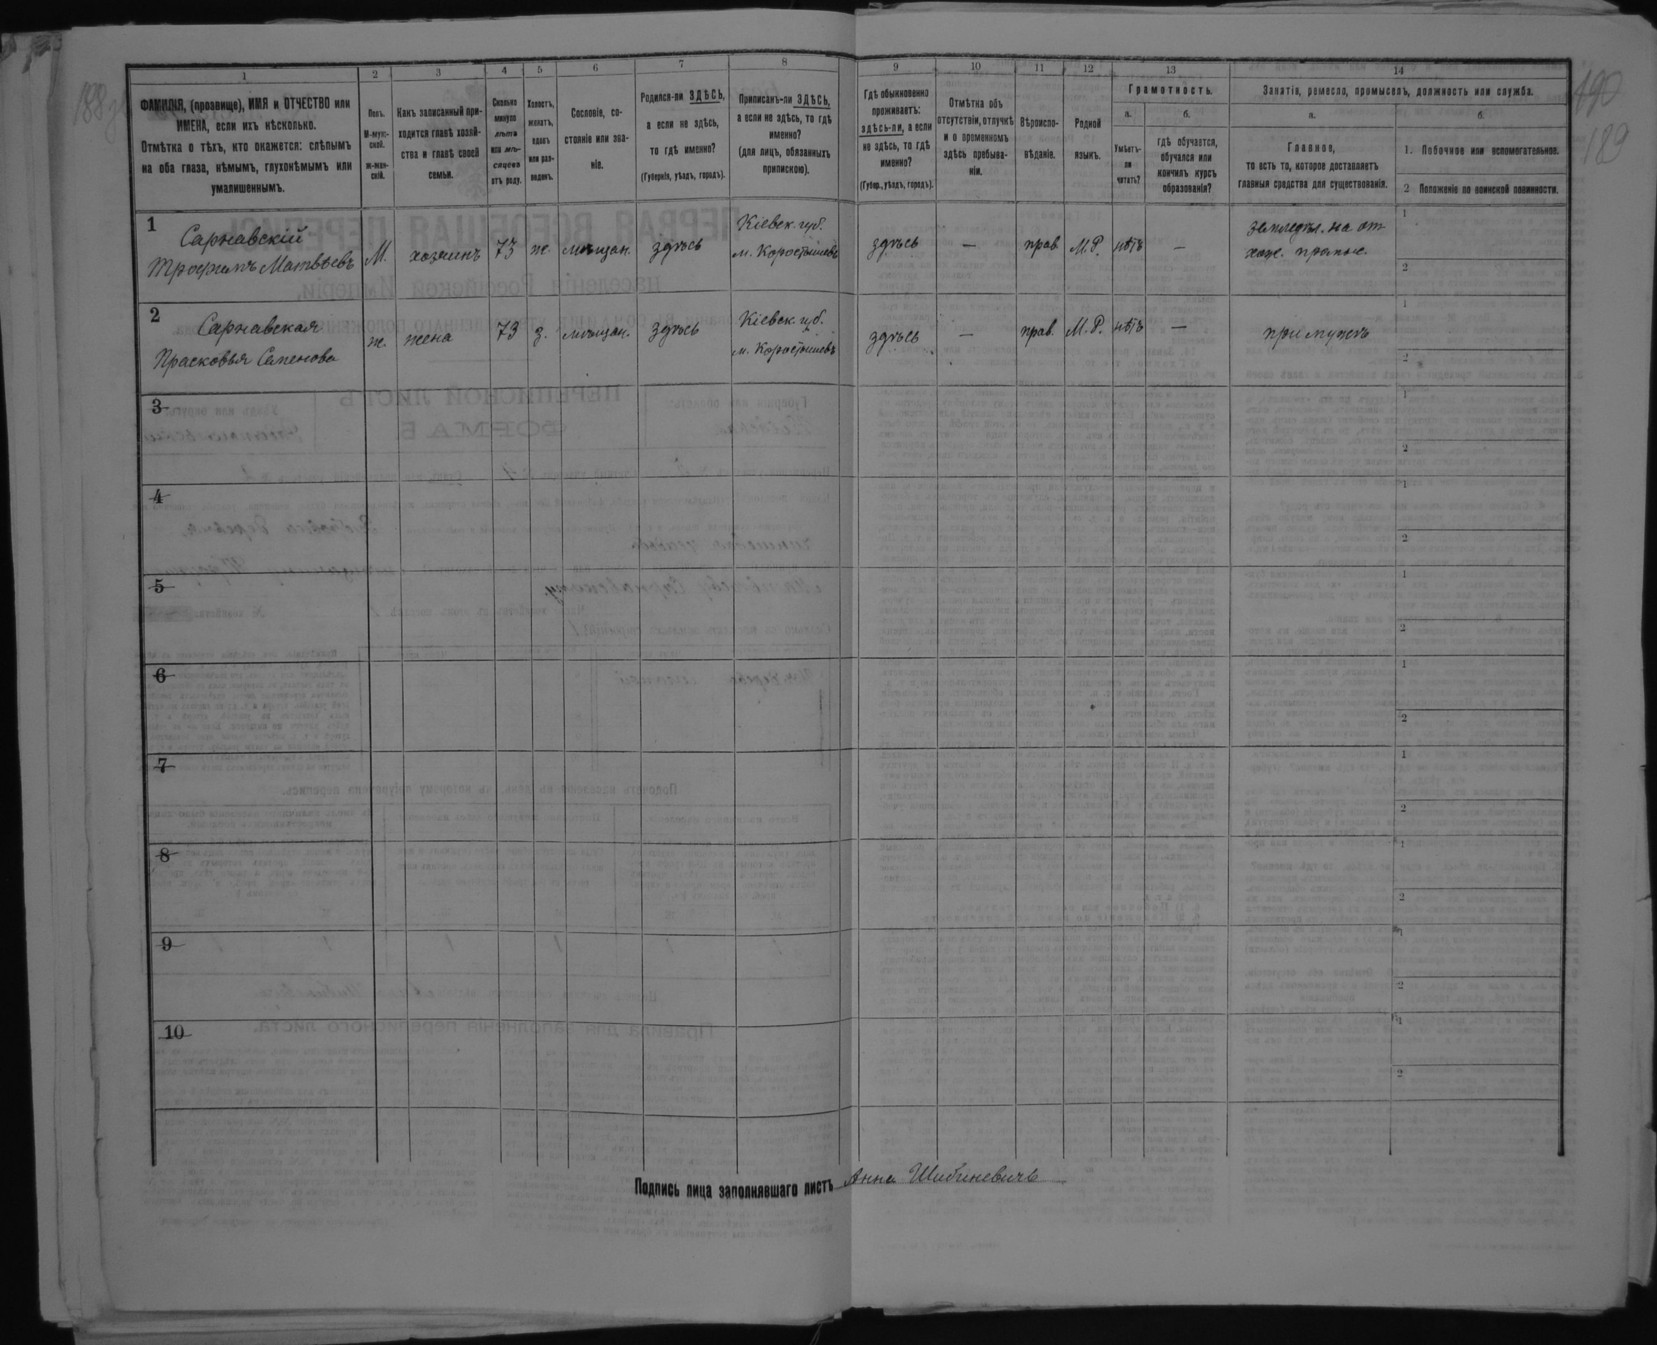 1
2
3
4
5
6
7
8
9
10
11
12
13
14
ФАМИЛІЯ, (прозвище), ИМЯ и ОТЧЕСТВО или
ИМЕНА, если ихъ нѣсколько.
Отмѣтка о тѣхъ, кто окажется: слѣпымъ
на оба глаза, нѣмымъ, глухонѣмымъ или
умалишеннымъ.
Полъ.
М-муж-
ской.
ж-жен-
скій.
Какъ записанный при-
ходится главѣ хозяй-
ства и главѣ своей
семьи.
Сколько
минуло
лѣтъ
или мѣ-
сяцевъ
отъ роду.
Холостъ,
женатъ,
вдовъ
или раз-
веденъ.
Сословіе, со-
стояніе или зва-
ніе.
Родился-ли ЗДѢСЬ,
а если не здѣсь,
то гдѣ именно?
(Губернія, уѣздъ, городъ).
Приписанъ-ли ЗДѢСЬ,
а если не здѣсь, то гдѣ
именно?
(для лицъ, обязанныхъ
припискою).
Гдѣ обыкновенно
проживаетъ:
здѣсь-ли, а если
не здѣсь, то гдѣ
именно?
(Губер., уѣздъ, городъ).
Отмѣтка объ
отсутствіи, отлучкѣ
и о временномъ
здѣсь пребыва-
ніи.
Вѣроиспо-
вѣданіе.
Родной
языкъ.
Грамотность.
а.
Умѣетъ-
ли
читать?
б.
гдѣ обучается,
обучался или
кончилъ курсъ
образованія?
Занятіе, ремесло, промыселъ, должность или служба.
а.
Главное,
то есть то, которое доставляетъ
главныя средства для существованія.
б.
1. Побочное или вспомогательное.
2 Положеніе по воинской повинности.
1
Сарнавскій
Трофимъ Матвѣевъ
М.
хозяинъ
73
ж.
мѣщан.
здѣсь
Кіевск. губ.
м. Коростышевъ
здѣсь
—
прав.
М.Р.
нѣтъ
—
земледѣл. на от
1
2
2
Сарнавская
Прасковья Семенова
ж.
жена
73
з.
мѣщан.
здѣсь
Кіевск. губ.
м. Коростышевъ
здѣсь
—
прав.
М.Р.
нѣтъ
—
при мужѣ
1
2
3
1
2
4
1
2
5
1
2
6
1
2
7
1
2
8
1
2
9
1
2
10
1
2
Подпись лица заполнявшаго листъ Анна